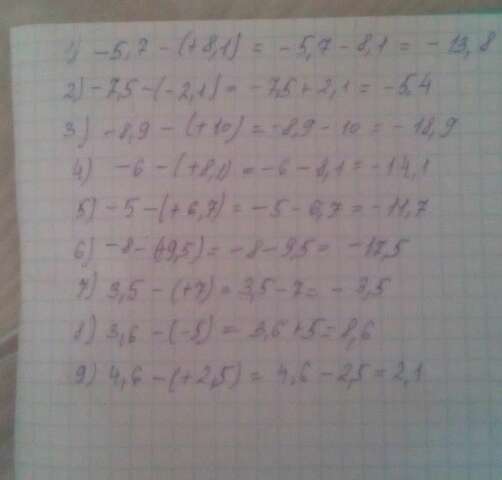 1) -5,7 - (+8,1) = -5,7 - 8,1 = -13,8
2) -7,5 - (-2,1) = -7,5 + 2,1 = -5,4
3) -8,9 - (+10) = -8,9 - 10 = -18,9
4) -6 - (+8,1) = -6 - 8,1 = -14,1
5) -5 - (+6,7) = -5 - 6,7 = -11,7
6) -8 - (+9,5) = -8 - 9,5 = -17,5
7) 3,5 - (+7) = 3,5 - 7 = -3,5
8) 3,6 - (-5) = 3,6 + 5 = 8,6
9) 4,6 - (+2,5) = 4,6 - 2,5 = 2,1